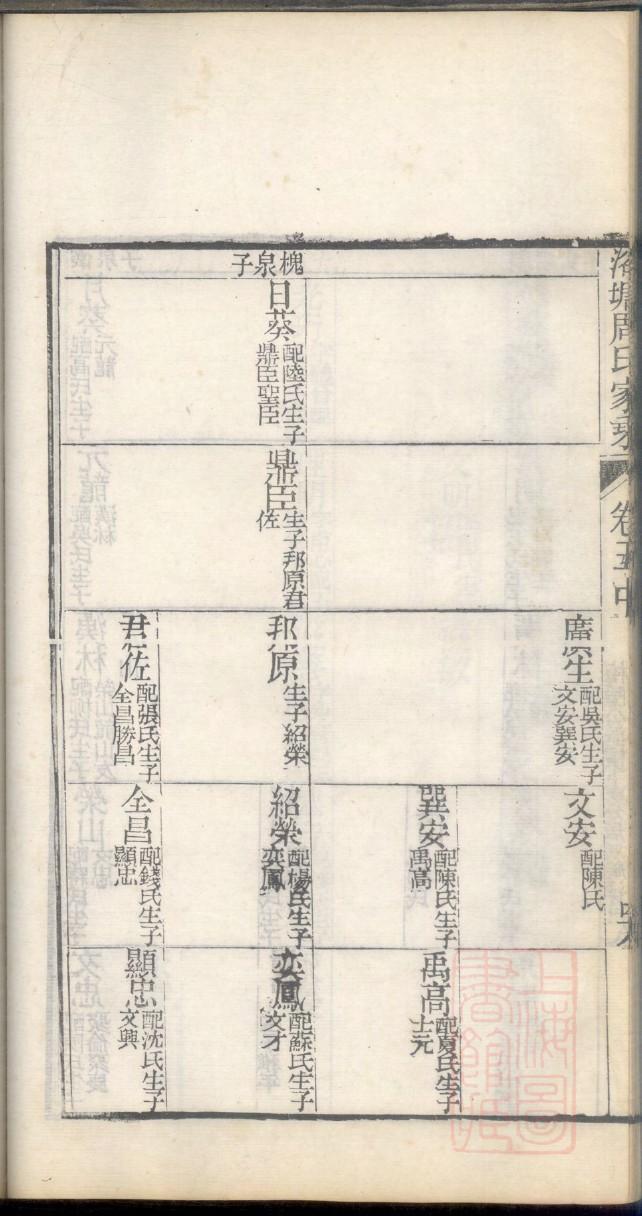 洛塘周氏家乘
卷五中
槐泉子
日葵 配陸氏生子
鼎臣聖臣
鼎臣 生子邦原君
佐
廣生 配吳氏生子
文安巽安
邦原 生子紹榮
君佐 配張氏生子
全昌勝昌
文安 配陳氏
巽安 配陳氏生子
禹高
紹榮 配楊氏生子
奕鳳
全昌 配錢氏生子
顯忠
禹高 配夏氏生子
士元
奕鳳 配蘇氏生子
文才
顯忠 配沈氏生子
文興
上海圖
書館藏